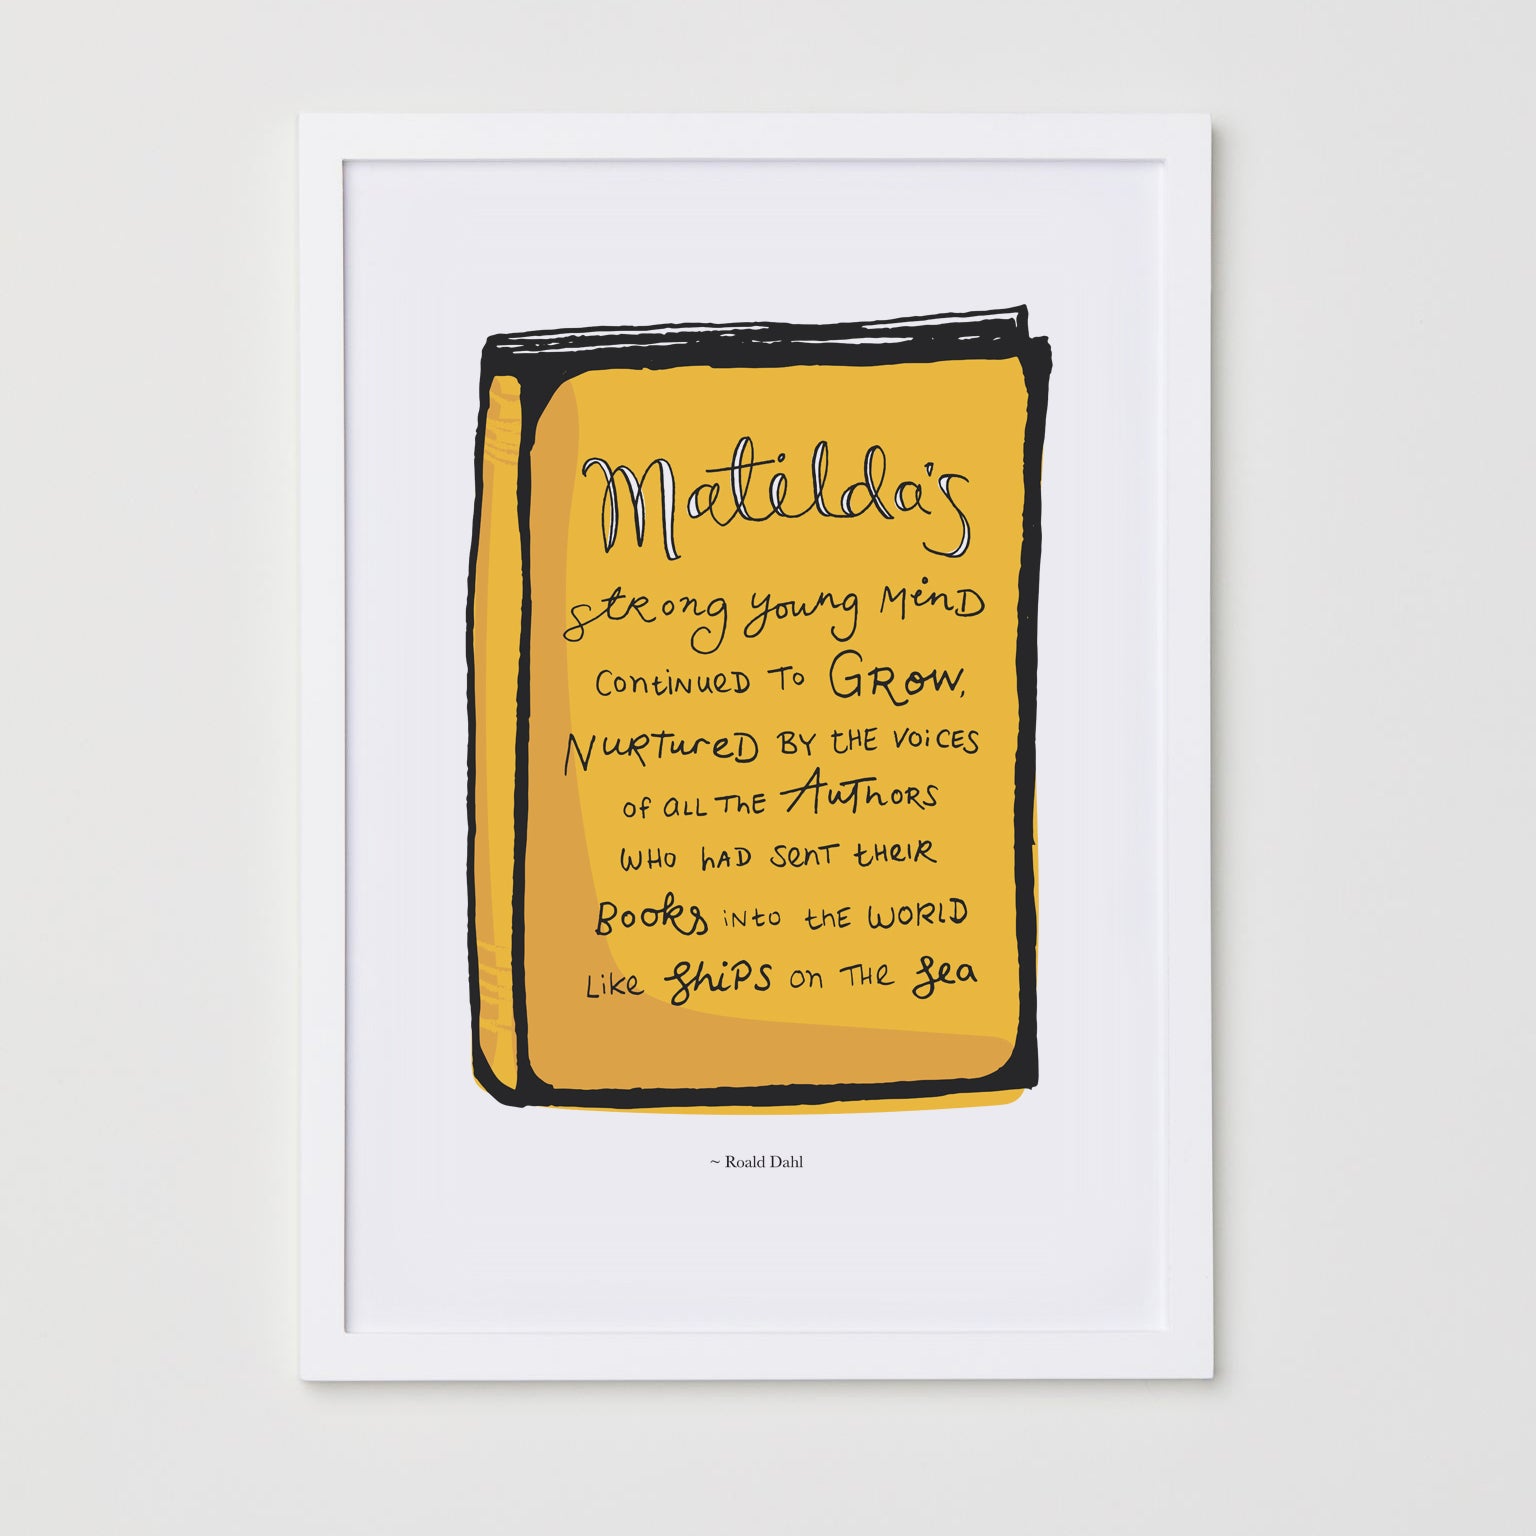 Matilda's
strong young mind
continued to Grow,
Nurtured by the voices
of all the Authors
who had sent their
Books into the world
like ships on the sea
~ Roald Dahl